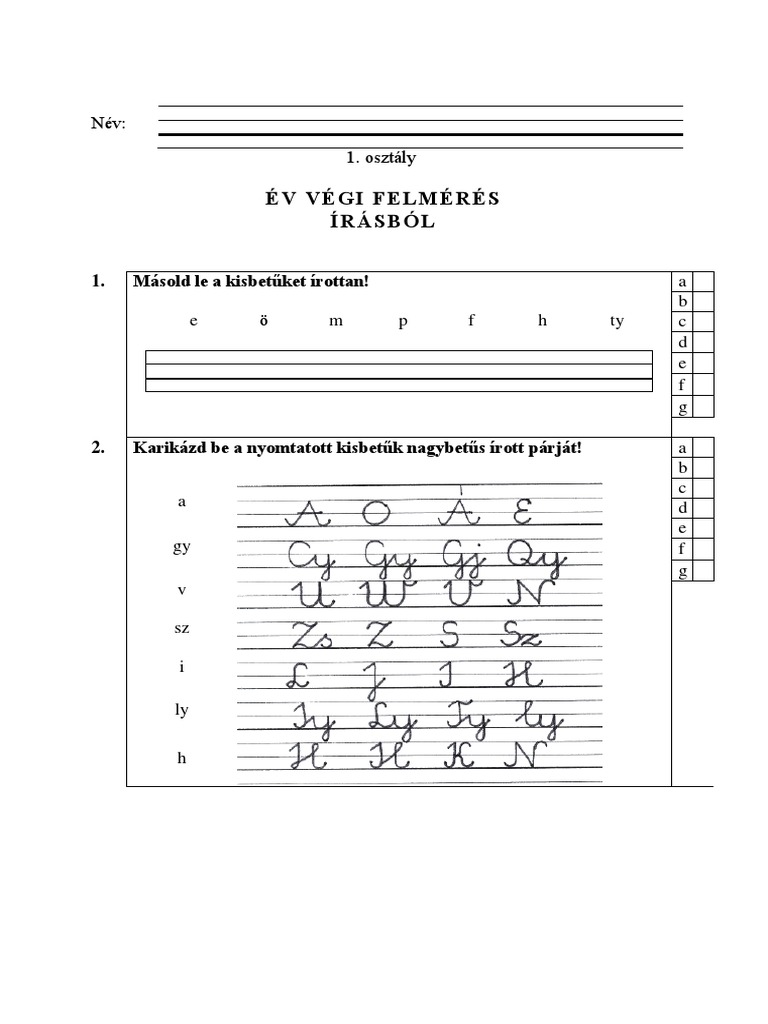 Név:
1. osztály
ÉV VÉGI FELMÉRÉS
ÍRÁSBÓL
1. Másold le a kisbetűket írottan!
e ö m p f h ty
a
b
c
d
e
f
g
2. Karikázd be a nyomtatott kisbetűk nagybetűs írott párját!
a A O Á E
gy Cy Gy Gj Qy
v U W V N
sz Zs Z S Sz
i L J I H
ly Ly Ty ly
h H K N
a
b
c
d
e
f
g